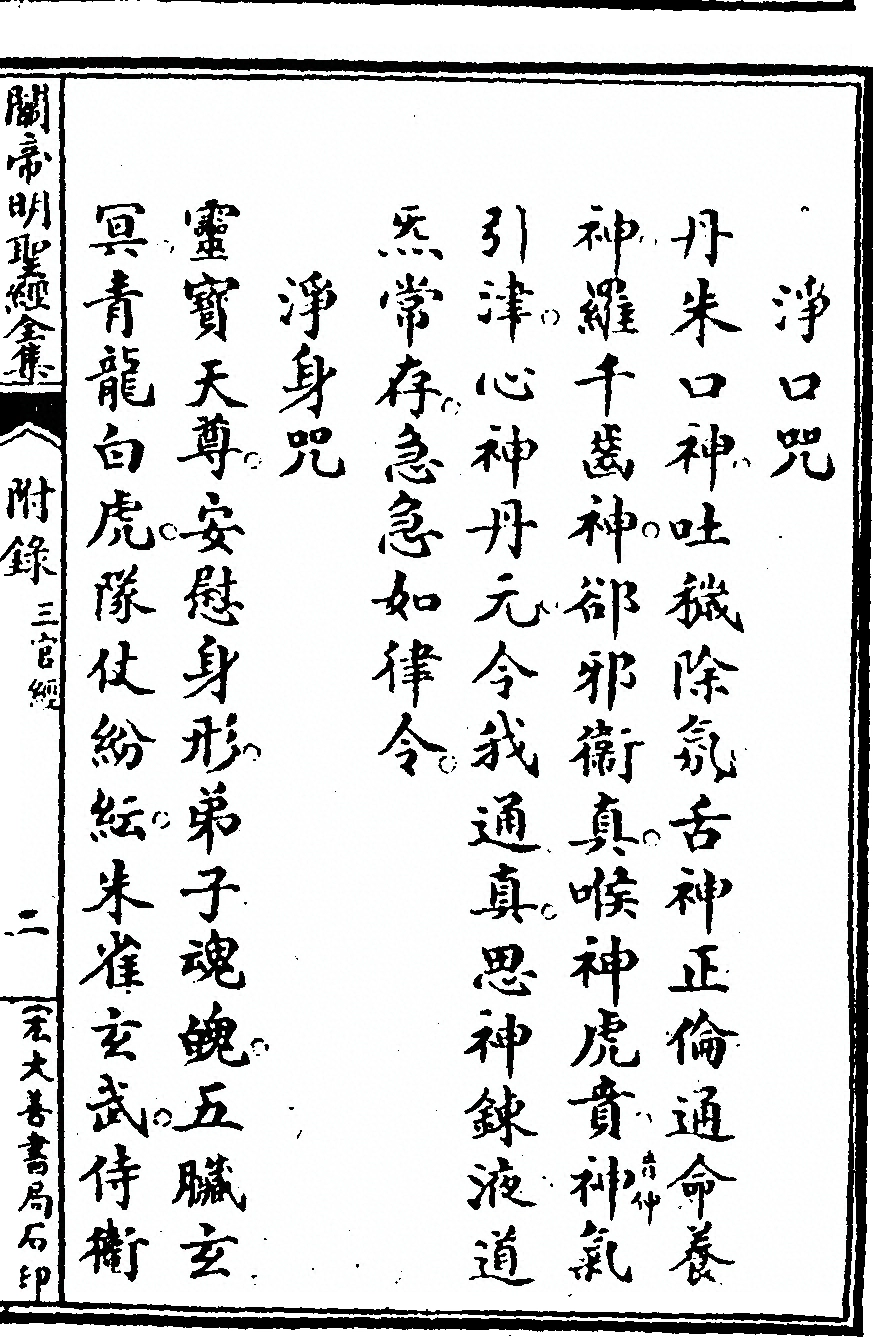 淨口咒
丹朱口神吐穢除氛舌神正倫通命養
神羅千齒神卻邪衞真喉神虎賁神氣
音仲
引津心神丹元令我通真思神鍊液道
炁常存急急如律令
淨身咒
靈寶天尊安慰身形弟子魂魄五臟玄
冥青龍白虎隊仗紛紜朱雀玄武侍衞
關帝明聖經全集
附錄
三官經
二
宏大善書局石印